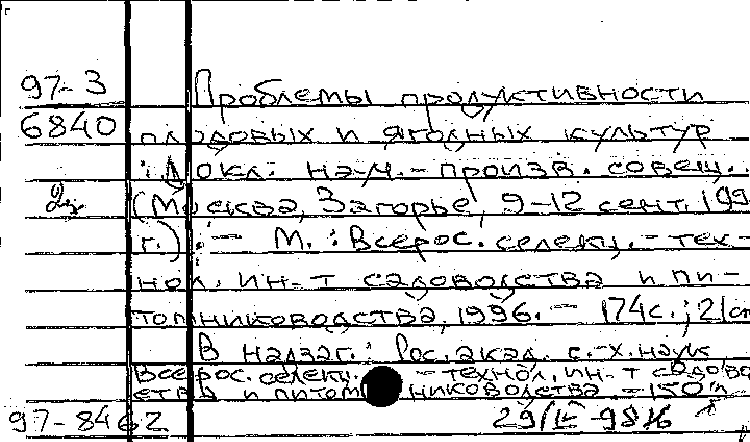 97-3 Проблемы продуктивности
6840 плодовых и ягодных культур
: Докл. науч.-произв. совещ.
(Москва, Загорье, 9-12 сент. 199
г.). - М. : Всерос. селекц.-тех-
нол. ин-т садоводства и пи-
томниководства, 1996. - 174с.; 21см
В надзаг.: Рос. акад. с.-х. наук
Всерос. селекц.-технол. ин-т садовод
ства и питомниководства - 150
97-8462